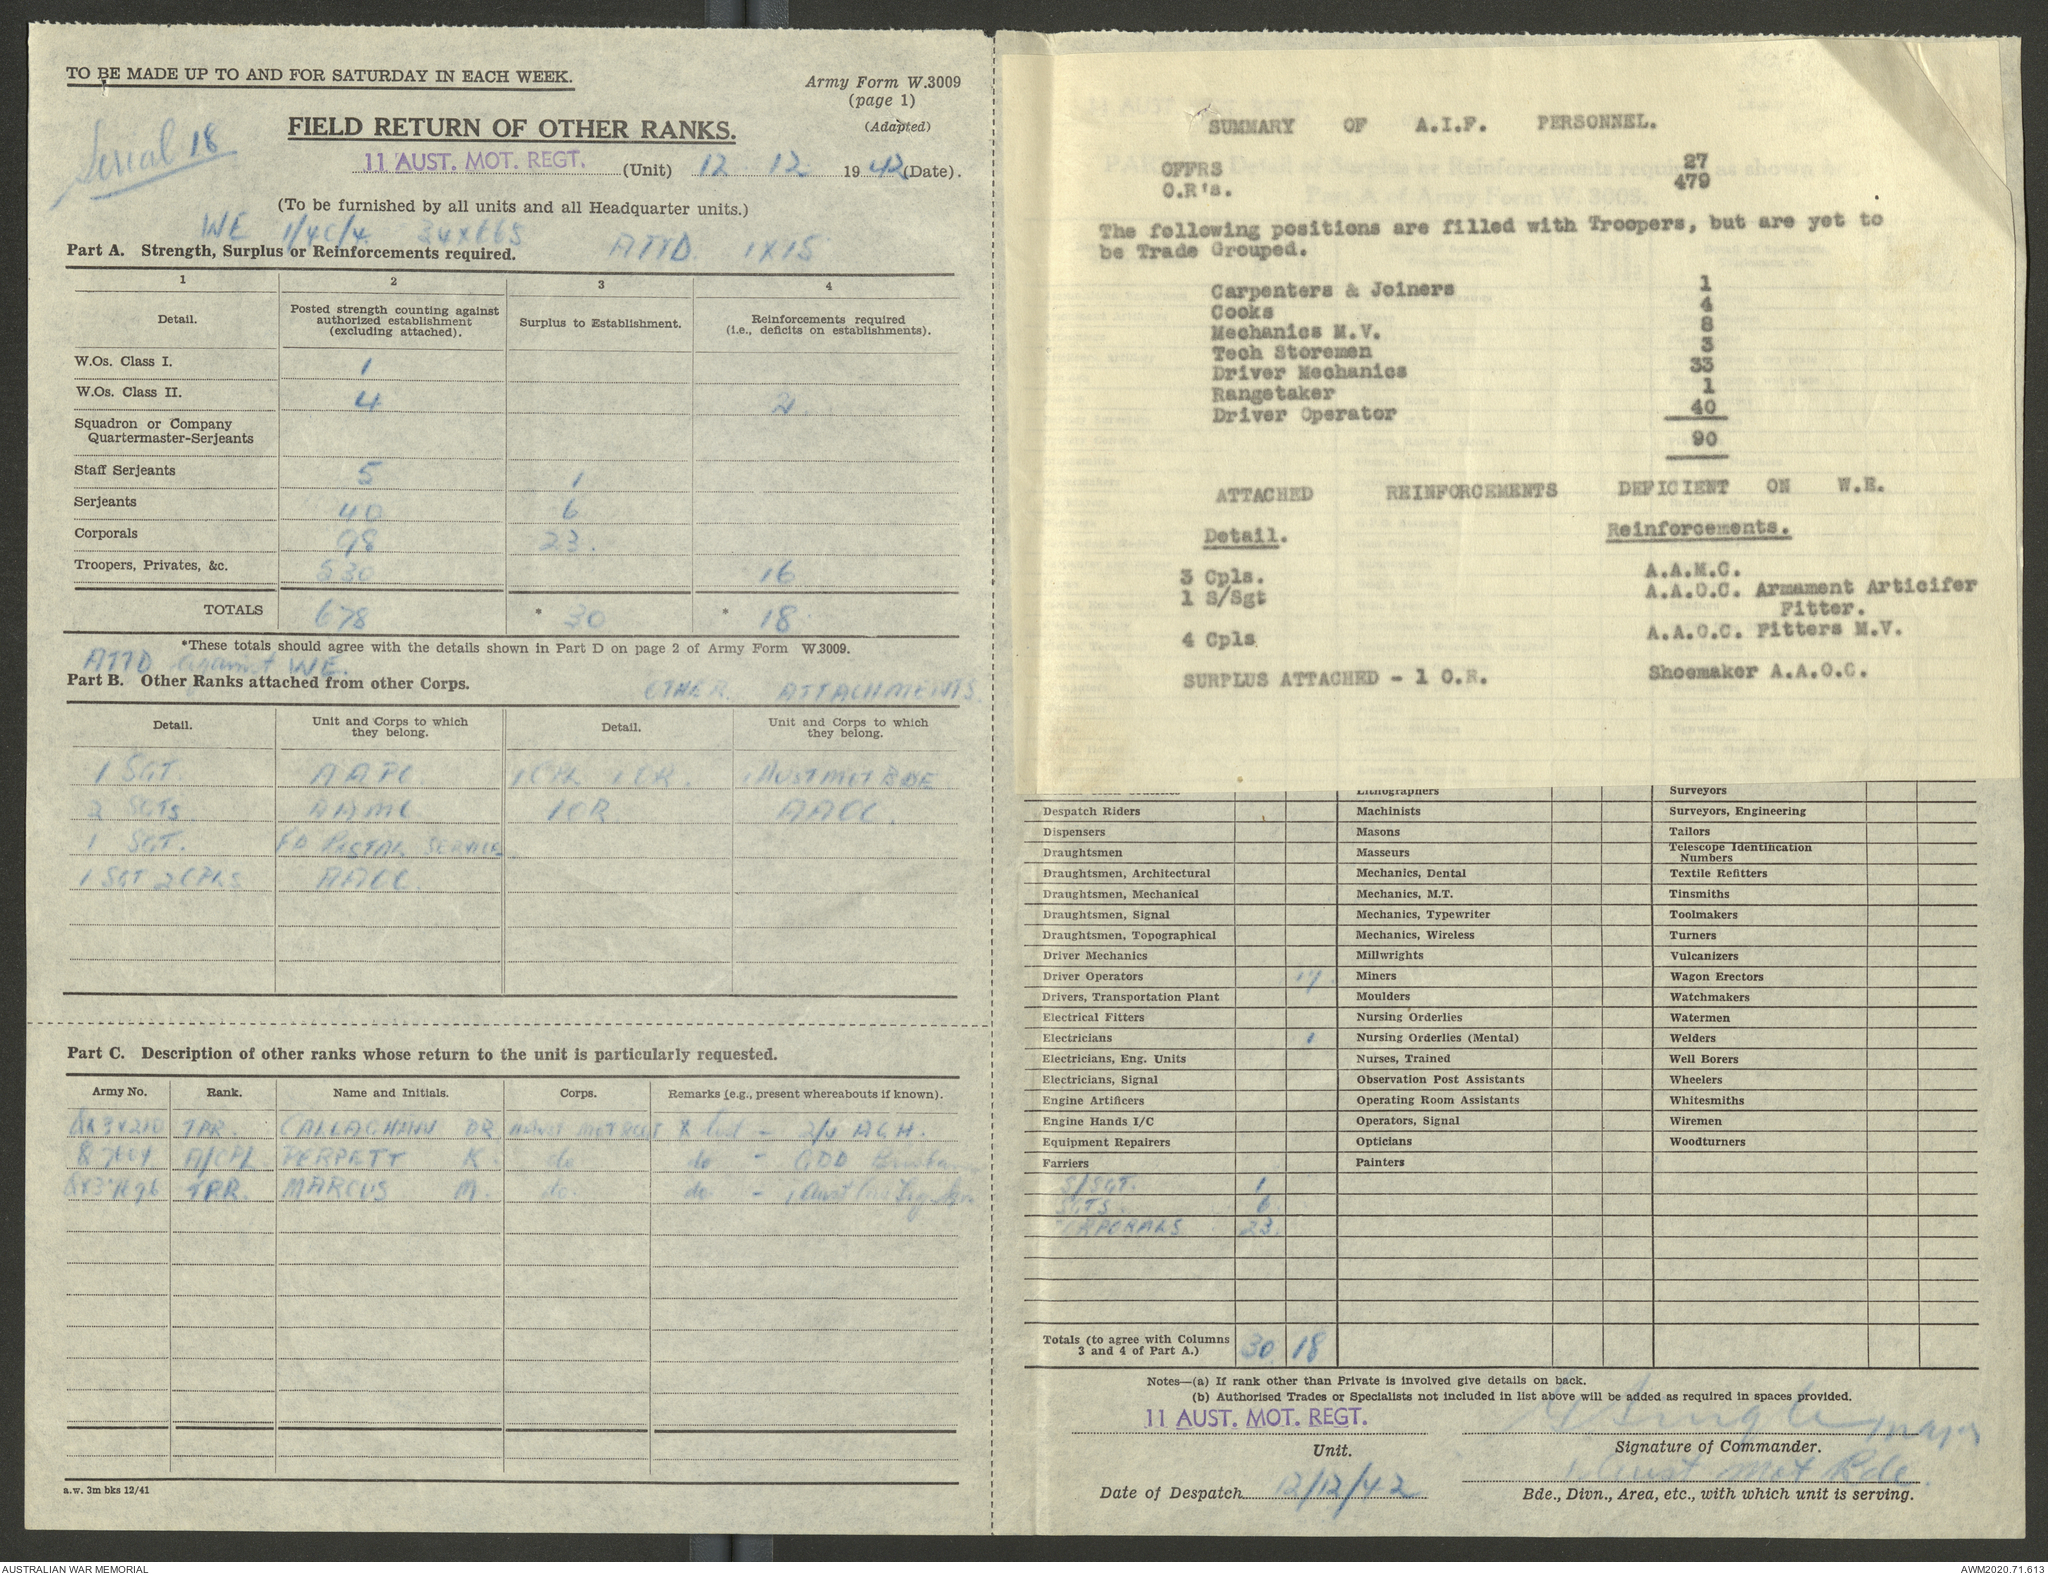 TO BE MADE UP TO AND FOR SATURDAY IN EACH WEEK.
Army Form W.3009
(page 1)
(Adapted)
Serial 18
FIELD RETURN OF OTHER RANKS.
11 AUST. MOT. REGT. (Unit) 12 . 12 . 1942 (Date).
(To be furnished by all units and all Headquarter units.)
WE 1/4C/4 34x665 ATTD. 1x15
Part A. Strength, Surplus or Reinforcements required.
1 2 3 4
Detail. Posted strength counting against authorized establishment (excluding attached). Surplus to Establishment. Reinforcements required (i.e., deficits on establishments).
W.Os. Class I. 1
W.Os. Class II. 4 2
Squadron or Company
Quartermaster-Serjeants
Staff Serjeants 5 1
Serjeants 40 6
Corporals 98 23.
Troopers, Privates, &c. 530 16
TOTALS 678 * 30 * 18
*These totals should agree with the details shown in Part D on page 2 of Army Form W.3009.
ATTD against WE.
Part B. Other Ranks attached from other Corps.
OTHER ATTACHMENTS
Detail. Unit and Corps to which they belong. Detail. Unit and Corps to which they belong.
1 SGT. AAPC 1 CPL 1 OR. 1 AUST MOT BDE
2 SGTS. AAMC 1 OR AAOC.
1 SGT. FD POSTAL SERVICE
1 SGT 2 CPLS AAOC.
Part C. Description of other ranks whose return to the unit is particularly requested.
Army No. Rank. Name and Initials. Corps. Remarks (e.g., present whereabouts if known).
TPR. CALLAGHAN DR X list - 2/4 AGH.
A/CPL PERPETT K. do do - GDD
TPR. MARCUS M. do. do - 1 Aust
a.w. 3m bks 12/41
SUMMARY OF A.I.F. PERSONNEL.
OFFRS 27
O.R's. 479
The following positions are filled with Troopers, but are yet to
be Trade Grouped.
Carpenters & Joiners 1
Cooks 4
Mechanics M.V. 8
Tech Storemen 3
Driver Mechanics 33
Rangetaker 1
Driver Operator 40
90
ATTACHED REINFORCEMENTS DEFICIENT ON W.E.
Detail. Reinforcements.
3 Cpls. A.A.M.C.
1 S/Sgt A.A.O.C. Armament Articifer
Fitter.
4 Cpls A.A.O.C. Fitters M.V.
SURPLUS ATTACHED - 1 O.R. Shoemaker A.A.O.C.
Lithographers Surveyors
Despatch Riders Machinists Surveyors, Engineering
Dispensers Masons Tailors
Draughtsmen Masseurs Telescope Identification Numbers
Draughtsmen, Architectural Mechanics, Dental Textile Refitters
Draughtsmen, Mechanical Mechanics, M.T. Tinsmiths
Draughtsmen, Signal Mechanics, Typewriter Toolmakers
Draughtsmen, Topographical Mechanics, Wireless Turners
Driver Mechanics Millwrights Vulcanizers
Driver Operators 17 Miners Wagon Erectors
Drivers, Transportation Plant Moulders Watchmakers
Electrical Fitters Nursing Orderlies Watermen
Electricians 1 Nursing Orderlies (Mental) Welders
Electricians, Eng. Units Nurses, Trained Well Borers
Electricians, Signal Observation Post Assistants Wheelers
Engine Artificers Operating Room Assistants Whitesmiths
Engine Hands I/C Operators, Signal Wiremen
Equipment Repairers Opticians Woodturners
Farriers Painters
S/SGT. 1
SGTS. 6
CORPORALS 23.
Totals (to agree with Columns 3 and 4 of Part A.) 30 18
Notes—(a) If rank other than Private is involved give details on back.
(b) Authorised Trades or Specialists not included in list above will be added as required in spaces provided.
11 AUST. MOT. REGT.
Major
Unit. Signature of Commander.
1 Aust Mot Bde.
Date of Despatch 12/12/42 Bde., Divn., Area, etc., with which unit is serving.
AUSTRALIAN WAR MEMORIAL AWM2020.71.613